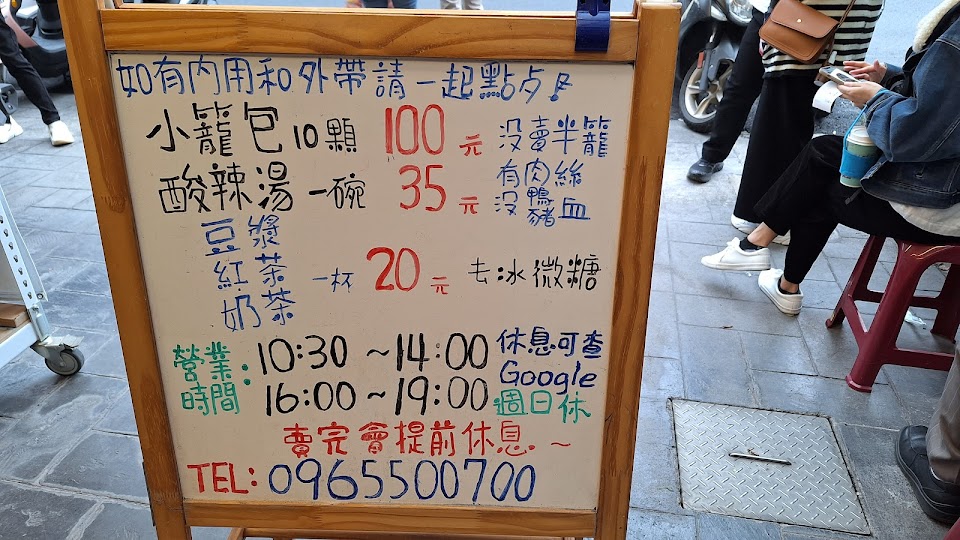 如有內用和外帶請一起點点!
小籠包 10顆 100元 沒賣半籠
酸辣湯 一碗 35元 有肉絲
沒鴨豬血
豆漿
紅茶 一杯 20元 去冰微糖
奶茶
營業時間: 10:30 ~ 14:00 休息可查 Google
16:00 ~ 19:00 週日休
賣完會提前休息~
TEL: 0965500700